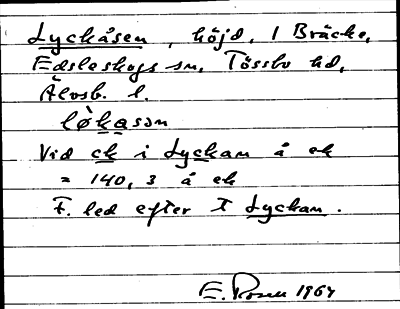 Lyckåsen, höjd, 1 Bräcke,
Edsleskogs sn, Tössbo hd,
Älvsb. l.
lø̀kasən
Vid ck i Lyckan å ek
= 140, 3 å ek
F. led efter T Lyckan.
E. Rosen 1964